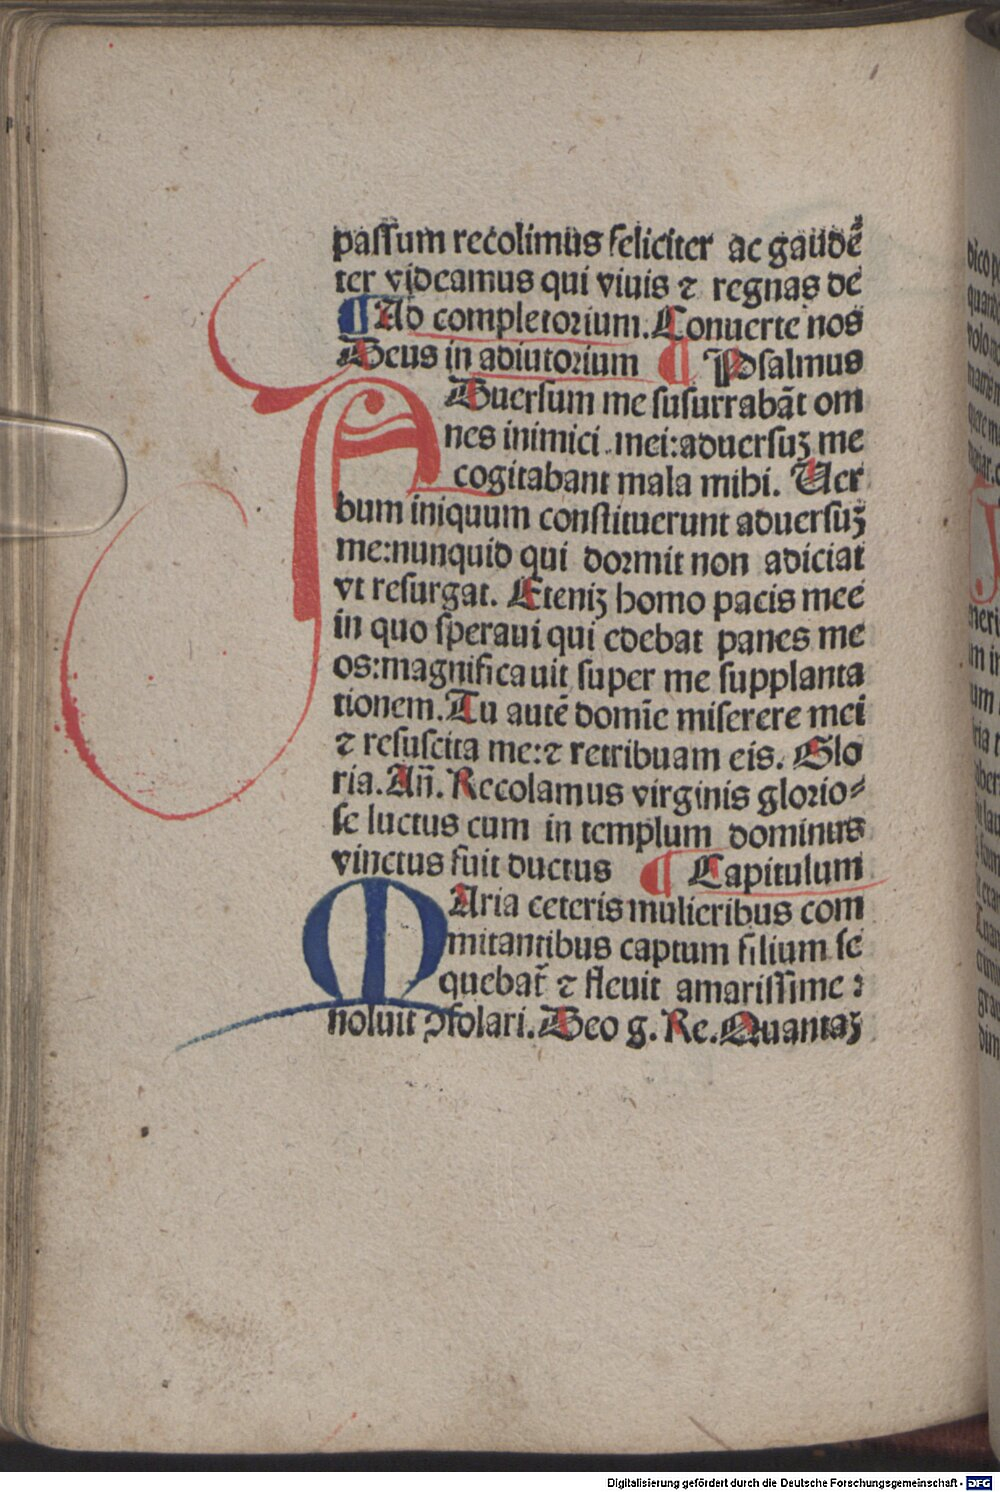 passum recolimus feliciter ac gaudē
ter videamus qui viuis ⁊ regnas de
¶ Ad completorium. Conuerte nos
Deus in adiutorium ¶ Psalmus
ADuersum me susurrabāt om
nes inimici mei: aduersuꝫ me
cogitabant mala mihi. Uer
bum iniquum constituerunt aduersuꝫ
me: nunquid qui dormit non adiciat
vt resurgat. Eteniꝫ homo pacis mee
in quo speraui qui edebat panes me
os: magnificauit super me supplanta
tionem. Tu autē domīe miserere mei
⁊ resuscita me: ⁊ retribuam eis. Glo
ria. Añ. Recolamus virginis glorio⸗
se luctus cum in templum dominus
vinctus fuit ductus ¶ Capitulum
MAria ceteris mulieribus com
mitantibus captum filium se
quebat̄ ⁊ fleuit amarissime :
noluit ↄsolari. Deo g. Re. Quantaꝫ
Digitalisierung gefördert durch die Deutsche Forschungsgemeinschaft - DFG